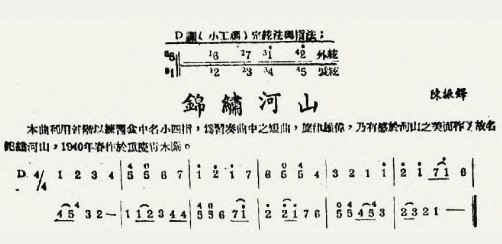 D調(小工調)定絃法與指法:
外絃
裏絃
錦繡河山
陳振鐸
本曲利用音階以練習食中名小四指,爲習奏曲中之短曲,旋律雄偉,乃有感於河山之美而作了故名
錦繡河山,1940年春作於重慶青木關。
D 4/4 1 2 3 4 | 5 5 6 7 | 1 2 1 7 | 6 5 5 4 | 3 2 1 1 | 2 1 7 1 6 |
4 5 3 2 — | 1 1 2 3 4 4 | 5 5 6 7 1 | 2 2 1 7 6 | 5 5 4 5 3 | 2 3 2 1 — |